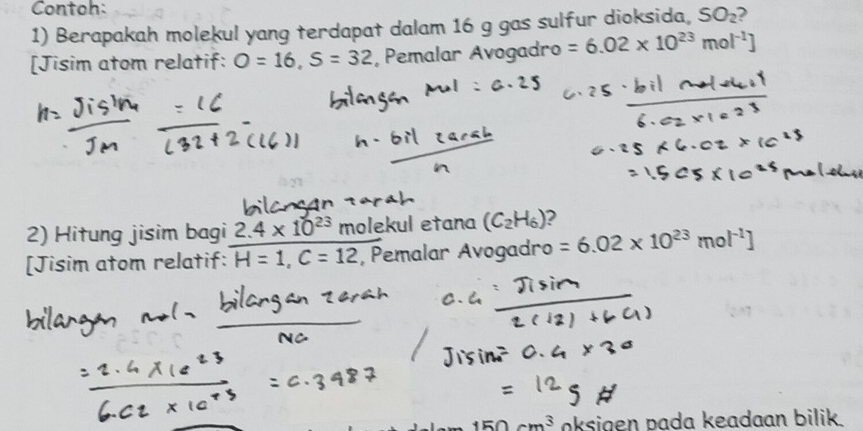 Contoh:
1) Berapakah molekul yang terdapat dalam 16 g gas sulfur dioksida, SO₂?
[Jisim atom relatif: O = 16, S = 32, Pemalar Avogadro = 6.02 × 10²³ mol⁻¹]
n = Jisim / Jm = 16 / (32 + 2(16))
bilangan mol = 0.25
n = bil zarah / n
0.25 = bil molekul / 6.02 × 10²³
0.25 × 6.02 × 10²³
= 1.505 × 10²³ molekul
bilangan zarah
2) Hitung jisim bagi 2.4 × 10²³ molekul etana (C₂H₆)?
[Jisim atom relatif: H = 1, C = 12, Pemalar Avogadro = 6.02 × 10²³ mol⁻¹]
bilangan mol = bilangan zarah / NA
= 2.4 × 10²³ / 6.02 × 10²³ = 0.3987
0.4 = Jisim / 2(12) + 6(1)
Jisim = 0.4 × 30
= 12 g #
150 cm³ oksigen pada keadaan bilik.